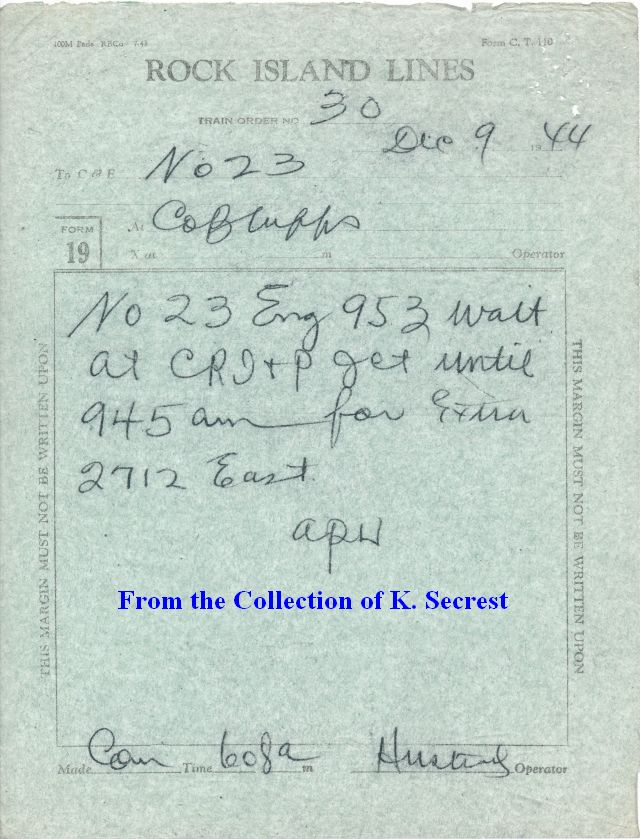 100M Beds RBCo 7-43 Form C. T. 110
ROCK ISLAND LINES
TRAIN ORDER NO 30
Dec 9 1944
To C & E No 23
FORM 19
At Co Bluffs
X at m Operator
THIS MARGIN MUST NOT BE WRITTEN UPON
No 23 Eng 953 wait
at CRI+P Jct until
945 am for Extra
2712 East
APW
THIS MARGIN MUST NOT BE WRITTEN UPON
From the Collection of K. Secrest
Made Com Time 608a m Operator